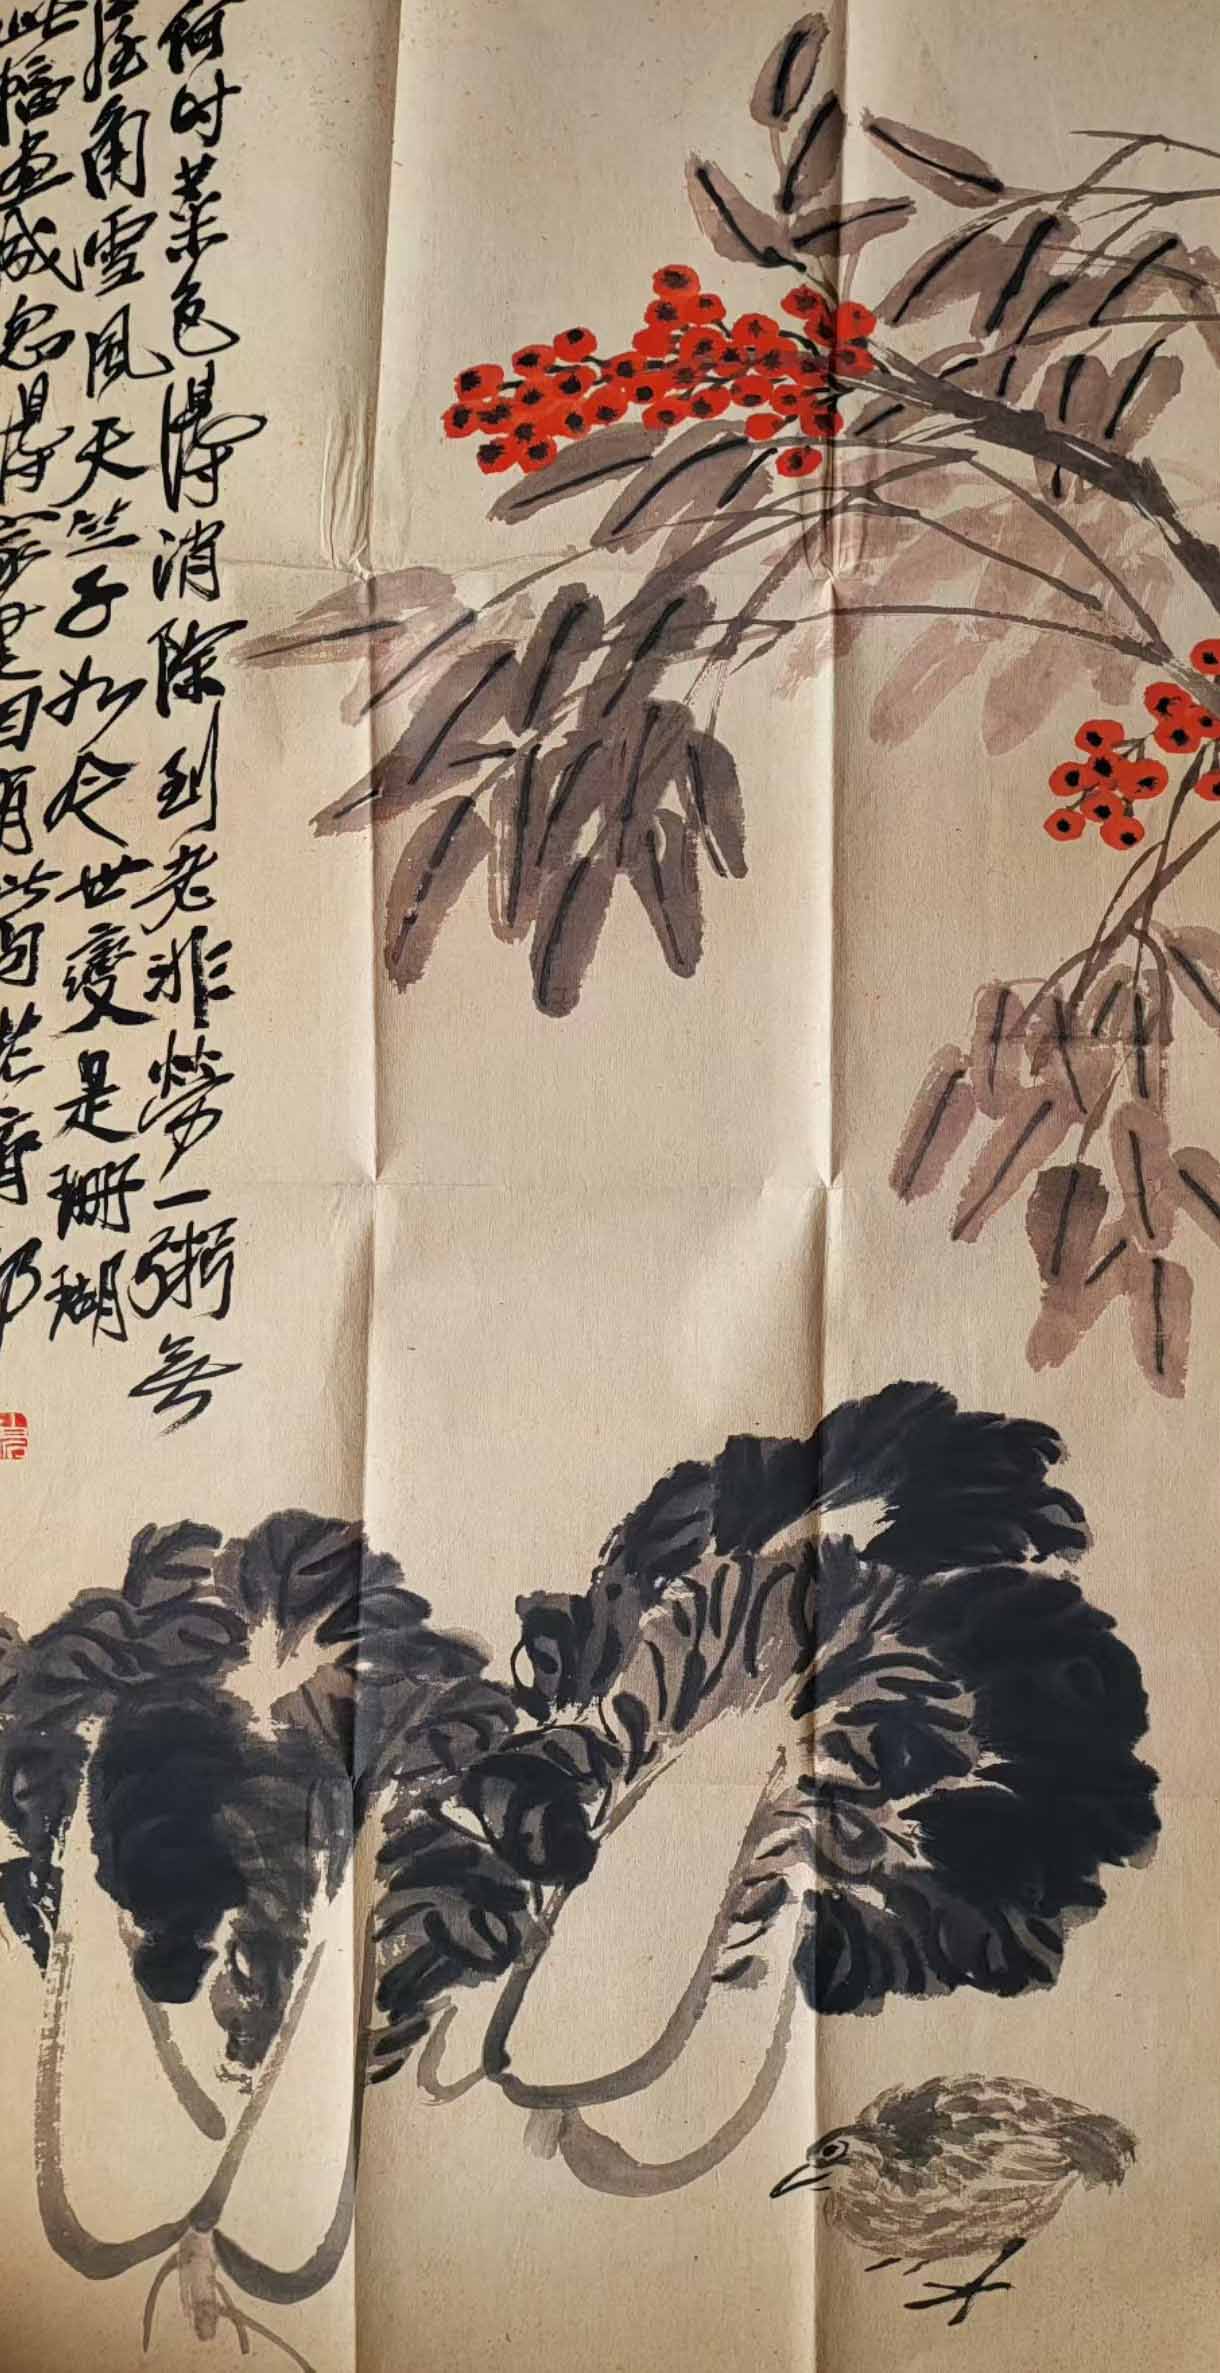 何时菜色得消除到老非劳一粥无
屋角雪风天竺子如今世变是珊瑚
此幅画成忽得家书因有此句老齐